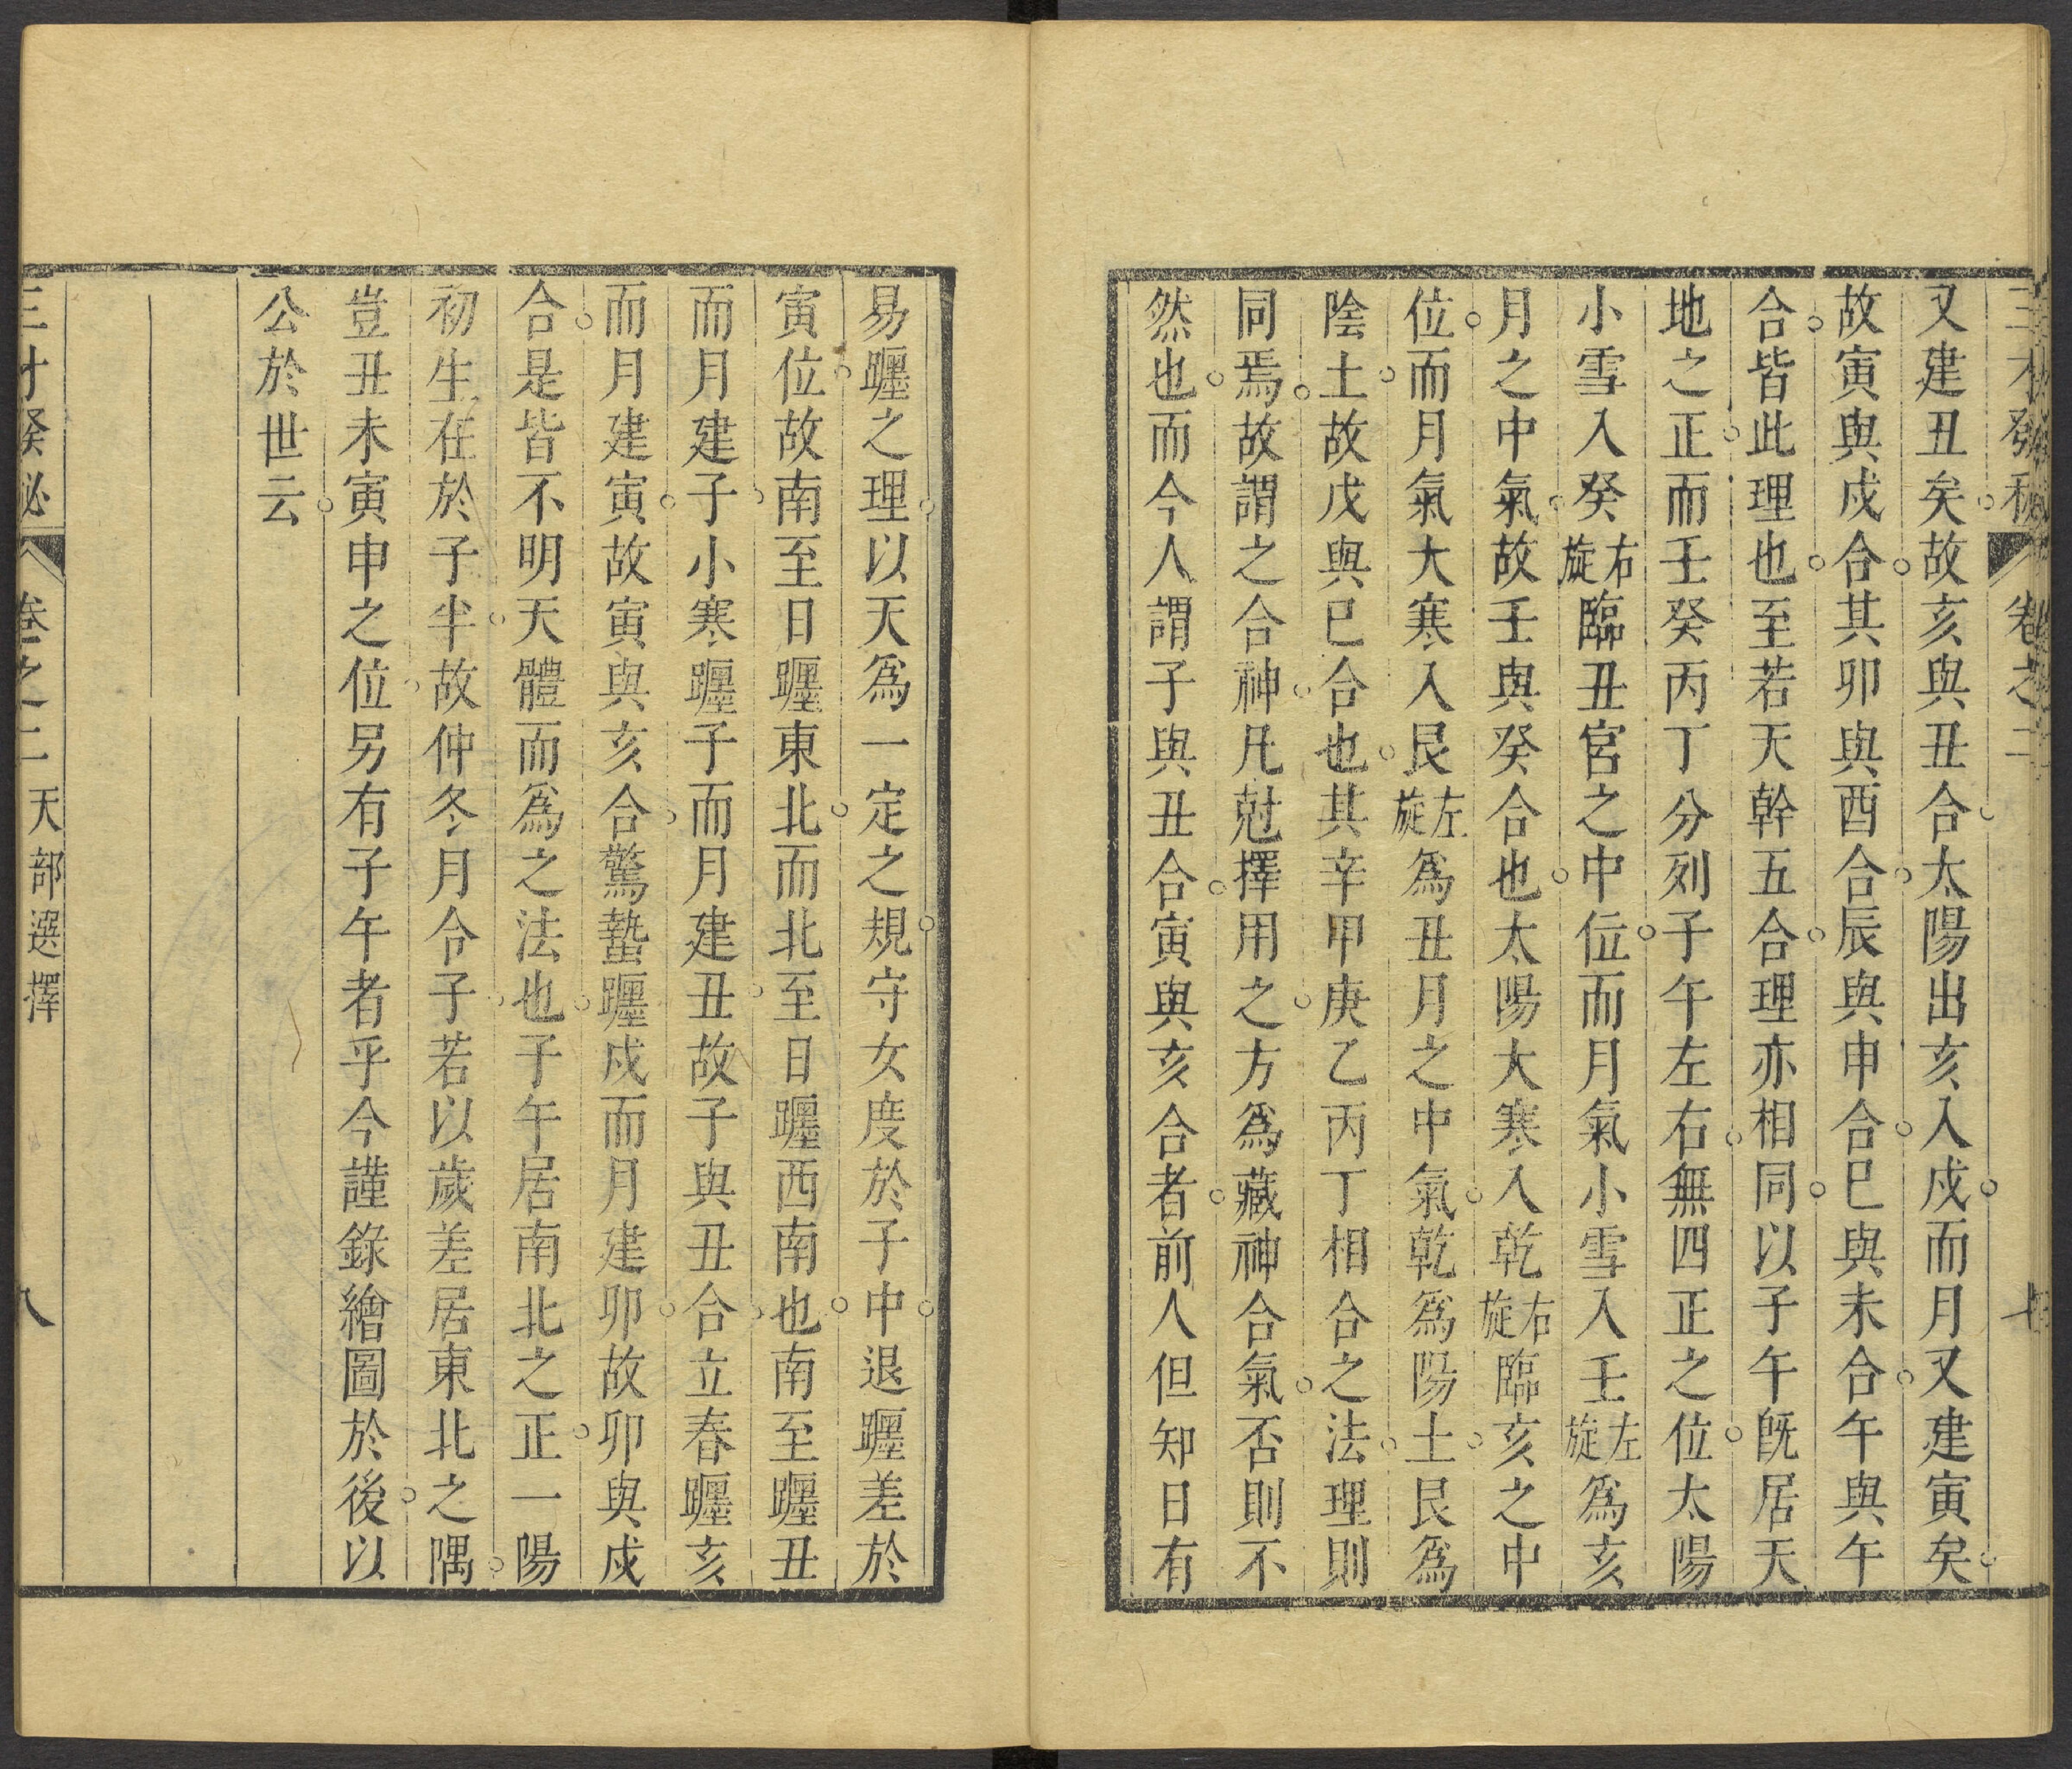 三才發秘 卷之二 七
又建丑矣。故亥與丑合。太陽出亥入戌。而月又建寅矣。
故寅與戌合。其卯與酉合。辰與申合。巳與未合。午與午
合。皆此理也。至若天幹五合。理亦相同。以子午旣居天
地之正。而壬癸丙丁分列子午左右。無四正之位。太陽
小雪入癸右旋臨丑宮之中位。而月氣小雪入壬左旋爲亥
月之中氣。故壬與癸合也。太陽大寒入乾右旋臨亥之中
位。而月氣大寒入艮左旋爲丑月之中氣。乾爲陽土。艮爲
陰土。故戊與巳合也。其辛甲庚乙丙丁相合之法。理則
同焉。故謂之合神。凡尅擇用之。方爲藏神合氣。否則不
然也。而今人謂子與丑合。寅與亥合者。前人但知日有
易躔之理。以天爲一定之規。守女度於子中。退躔差於
寅位。故南至日躔東北。而北至日躔西南也。南至躔丑
而月建子。小寒躔子而月建丑。故子與丑合。立春躔亥
而月建寅。故寅與亥合。驚蟄躔戌而月建卯。故卯與戌
合。是皆不明天體而爲之法也。子午居南北之正。一陽
初生在於子半。故仲冬月令子。若以歲差居東北之隅。
豈丑未寅申之位。另有子午者乎。今謹錄繪圖於後。以
公於世云。
三才發秘 卷之二 天部選擇 八